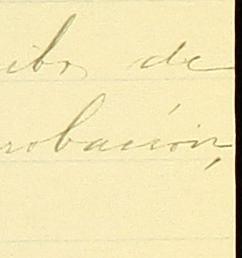 ibo de
robación,